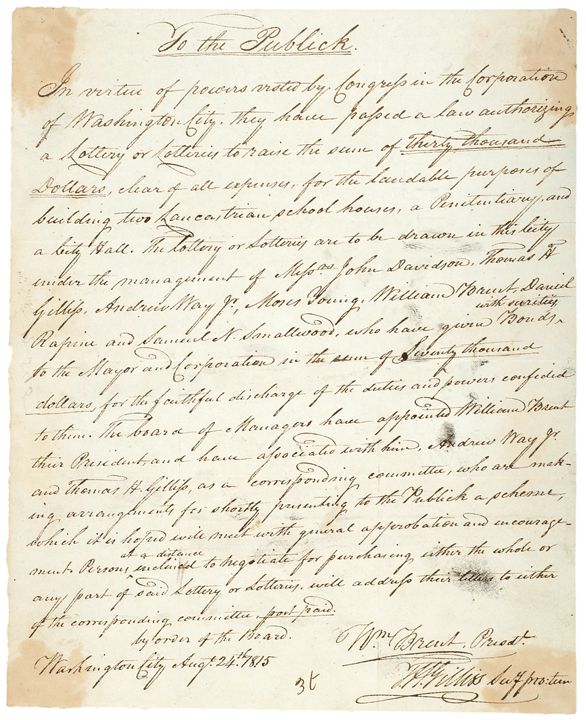 To the Publick.
In virtue of powers vested by Congress in the Corporation
of Washington City, they have passed a law authorizing
a Lottery or Lotteries to raise the sum of Thirty thousand
Dollars, clear of all expenses, for the laudable purposes of
building two Lancastrian school houses, a Penitentiary, and
a City Hall. The Lottery or Lotteries are to be drawn in this City
under the management of Messrs John Davidson, Thomas H
Gilliss, Andrew Way Jr, Moses Young, William Brent, Daniel
with sureties
Rapine and Samuel N. Smallwood, who have given Bonds
to the Mayor and Corporation in the sum of Seventy thousand
dollars, for the faithful discharge of the duties and powers confided
to them. The board of Managers have appointed William Brent
their President and have associated with him, Andrew Way Jr.
and Thomas H. Gilliss, as a corresponding committee, who are mak-
ing arrangements for shortly presenting to the Publick a scheme,
which it is hoped will meet with general approbation and encourage-
at a distance
ment. Persons inclined to negotiate for purchasing either the whole or
any part of said Lottery or Lotteries, will address their letters to either
of the corresponding committee, post paid.
by order of the Board.
Wm Brent, Presdt.
Washington City Augt. 24th 1815
TH. Gilliss Secy pro: tem
3t